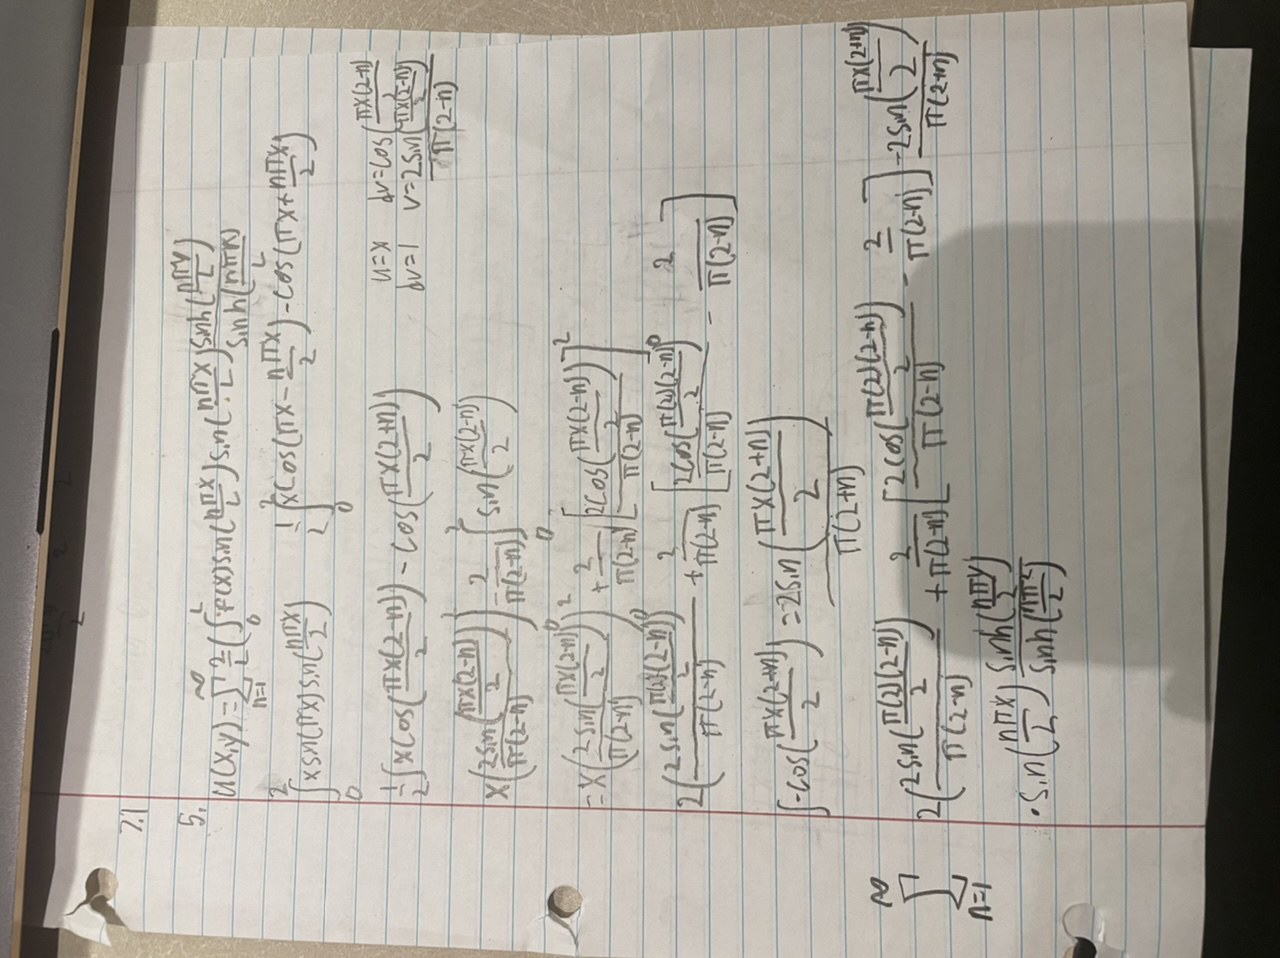 7.1
5.
u(x,y) = ∑_{n=1}^{∞} 2/L (∫_0^L f(x) sin(nπx/L) sin(nπx/L) sinh(nπy/L) / sinh(nπk/L)
∫_0^2 x sin(πx) sin(nπx/2)   1/2 ∫_0^2 x cos(πx - nπx/2) - cos(πx + nπx/2)
1/2 ∫ x cos(πx(2-n)/2) - cos(πx(2+n)/2)   u=x   dv=cos(πx(2-n)/2)
dv=1   v=2sin(πx(2-n)/2) / π(2-n)
x(2sin(πx(2-n)/2) / π(2-n)) - 2/π(2-n) ∫_0^2 sin(πx(2-n)/2)
= x(2sin(πx(2-n)/2) / π(2-n))_0^2 + 2/π(2-n) [2cos(πx(2-n)/2) / π(2-n)]^2
2(2sin(π(2)(2-n)/2) / π(2-n)) + 2/π(2-n) [2cos(π(2)(2-n)/2) / π(2-n) - 2/π(2-n)]
∫-cos(πx(2+n)/2) = 2sin(πx(2+n)/2) / π(2+n)
∑_{n=1}^{∞} 2(2sin(π(2)(2-n)/2) / π(2-n)) + 2/π(2-n) [2cos(π(2)(2-n)/2) / π(2-n) - 2/π(2-n)] - 2sin(πx(2+n)/2) / π(2+n)
· sin(nπx/2) sinh(nπy/2) / sinh(nπ²/2)